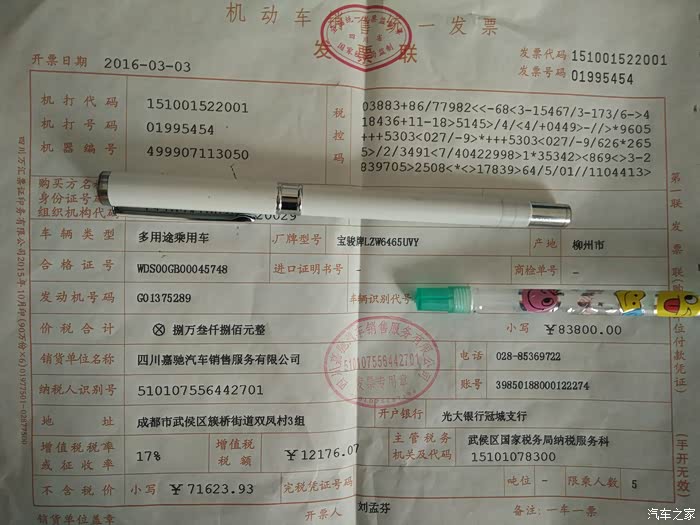 机动车销售统一发票
发票联
开票日期 2016-03-03
发票代码 151001522001
发票号码 01995454
机打代码 151001522001
机打号码 01995454
机器编号 499907113050
税控码
03883+86/77982<<-68<3-15467/3-173/6->4
18436+11-18>5145>/4/<4/+0449>-//>*9605
*+++5303<027/-9>*+++5303<027/-9/626*265
5>/2/3491<7/40422998>1*35342><869<>3-2
839705>2508<*<>17839>64/5/01//1104413>
购买方名
身份证号码
组织机构代码
车辆类型 多用途乘用车 厂牌型号 宝骏牌LZW6465UVY 产地 柳州市
合格证号 WDS00GB00045748 进口证明书号 - 商检单号 -
发动机号码 G01375289 车辆识别代号
价税合计 ⊗ 捌万叁仟捌佰元整 小写 ￥83800.00
销货单位名称 四川嘉驰汽车销售服务有限公司 电话 028-85369722
纳税人识别号 510107556442701 账号 39850188000122274
地址 成都市武侯区簇桥街道双凤村3组 开户银行 光大银行冠城支行
增值税税率或征收率 17% 增值税税额 ￥12176.07 主管税务机关及代码 武侯区国家税务局纳税服务科 15101078300
不含税价 小写 ￥71623.93 完税凭证号码 吨位 - 限乘人数 5
销货单位盖章 开票人 刘孟芬 备注：一车一票
第一联 发票联
(手开无效)
四川嘉驰汽车销售服务有限公司
510107556442701
发票专用章
汽车之家